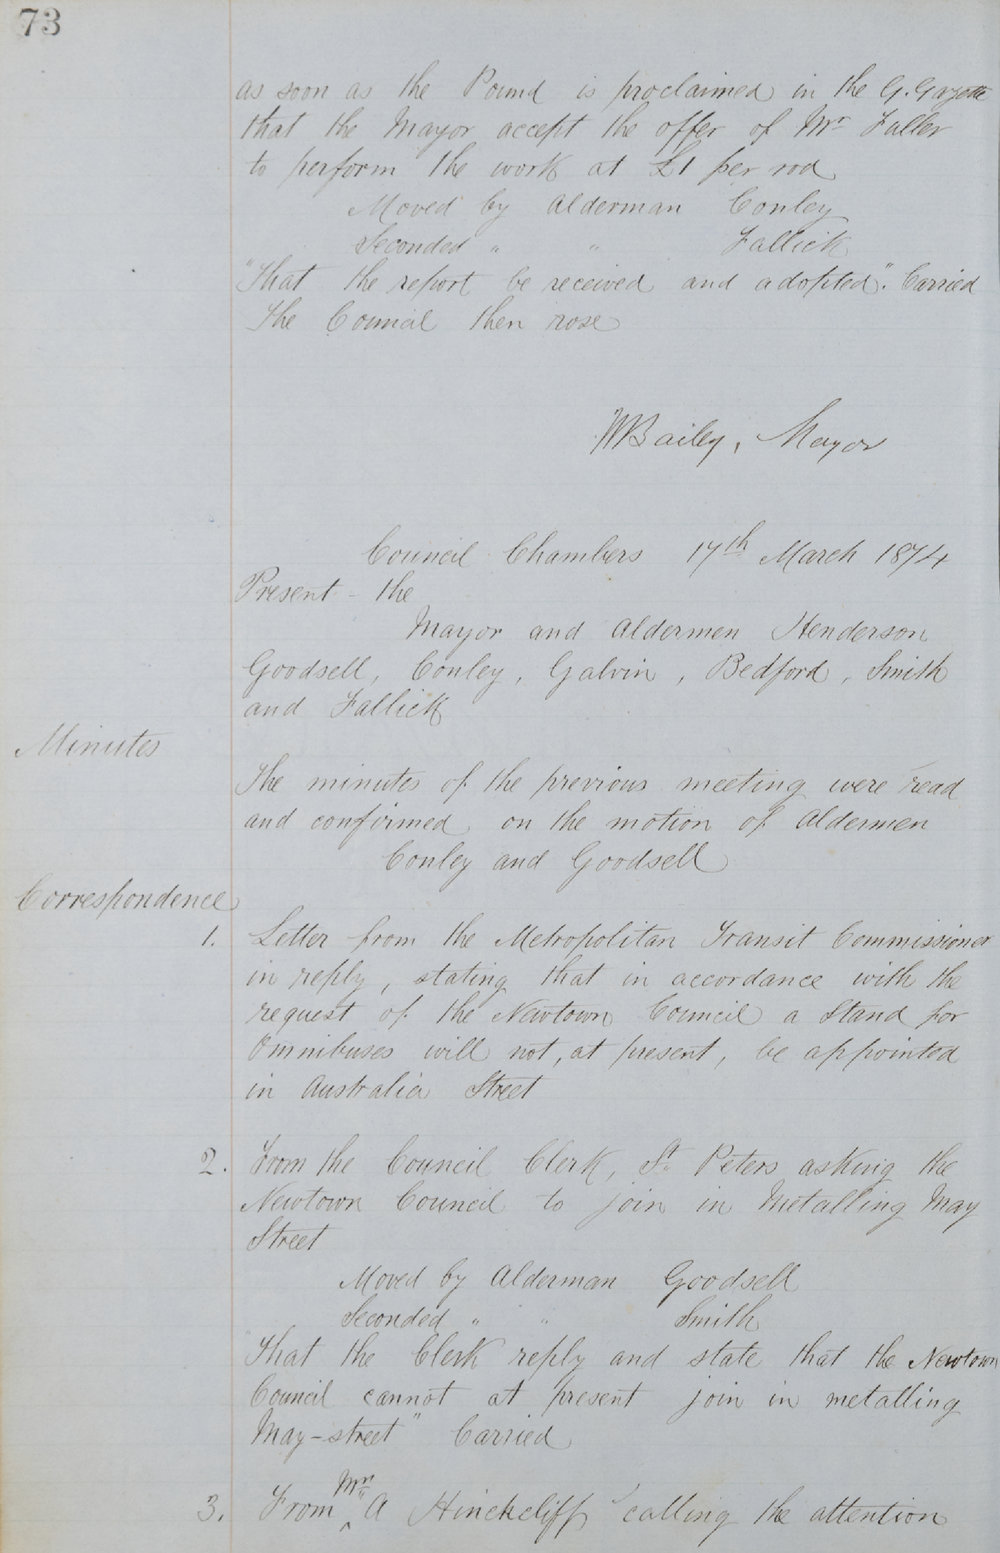 73
as soon as the Pound is proclaimed in the G. Gazette
that the Mayor accept the offer of Mr Faller
to perform the work at £1 per rod
Moved by Alderman Conley
Seconded " " Fallick
"That the report be received and adopted". Carried
The Council then rose
WBailey, Mayor
Council Chambers 17th March 1874
Present - the
Mayor and Aldermen Henderson
Goodsell, Conley, Galvin, Bedford, Smith
and Fallick
Minutes
The minutes of the previous meeting were read
and confirmed on the motion of Aldermen
Conley and Goodsell
Correspondence
1. Letter from the Metropolitan Transit Commissioner
in reply, stating that in accordance with the
request of the Newtown Council a Stand for
Omnibuses will not, at present, be appointed
in Australia Street
2. From the Council Clerk, St. Peters asking the
Newtown Council to join in Metalling May
Street
Moved by Alderman Goodsell
Seconded " " Smith
"That the Clerk reply and state that the Newtown
Council cannot at present join in metalling
May-street" Carried
3. From Mr A Hinchcliff calling the attention